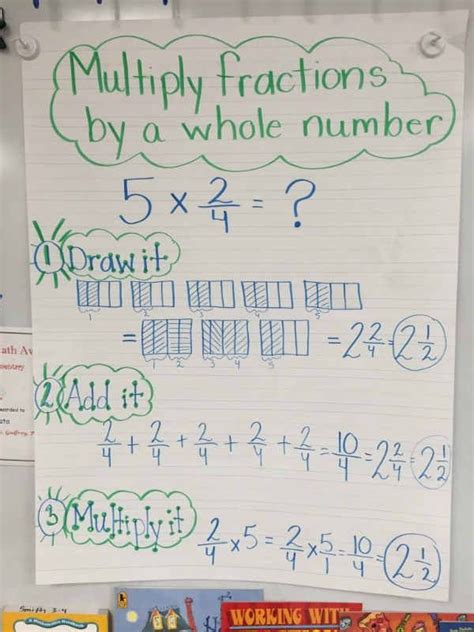 Multiply fractions
by a whole number
5 × 2/4 = ?
1 Draw it
1 2 3 4 5
1 2 3 4 5
= 2 2/4 = 2 1/2
2 Add it
2/4 + 2/4 + 2/4 + 2/4 + 2/4 = 10/4 = 2 2/4 = 2 1/2
3 Multiply it
2/4 × 5 = 2/4 × 5/1 = 10/4 = 2 1/2
ath Aw
WORKING WITH